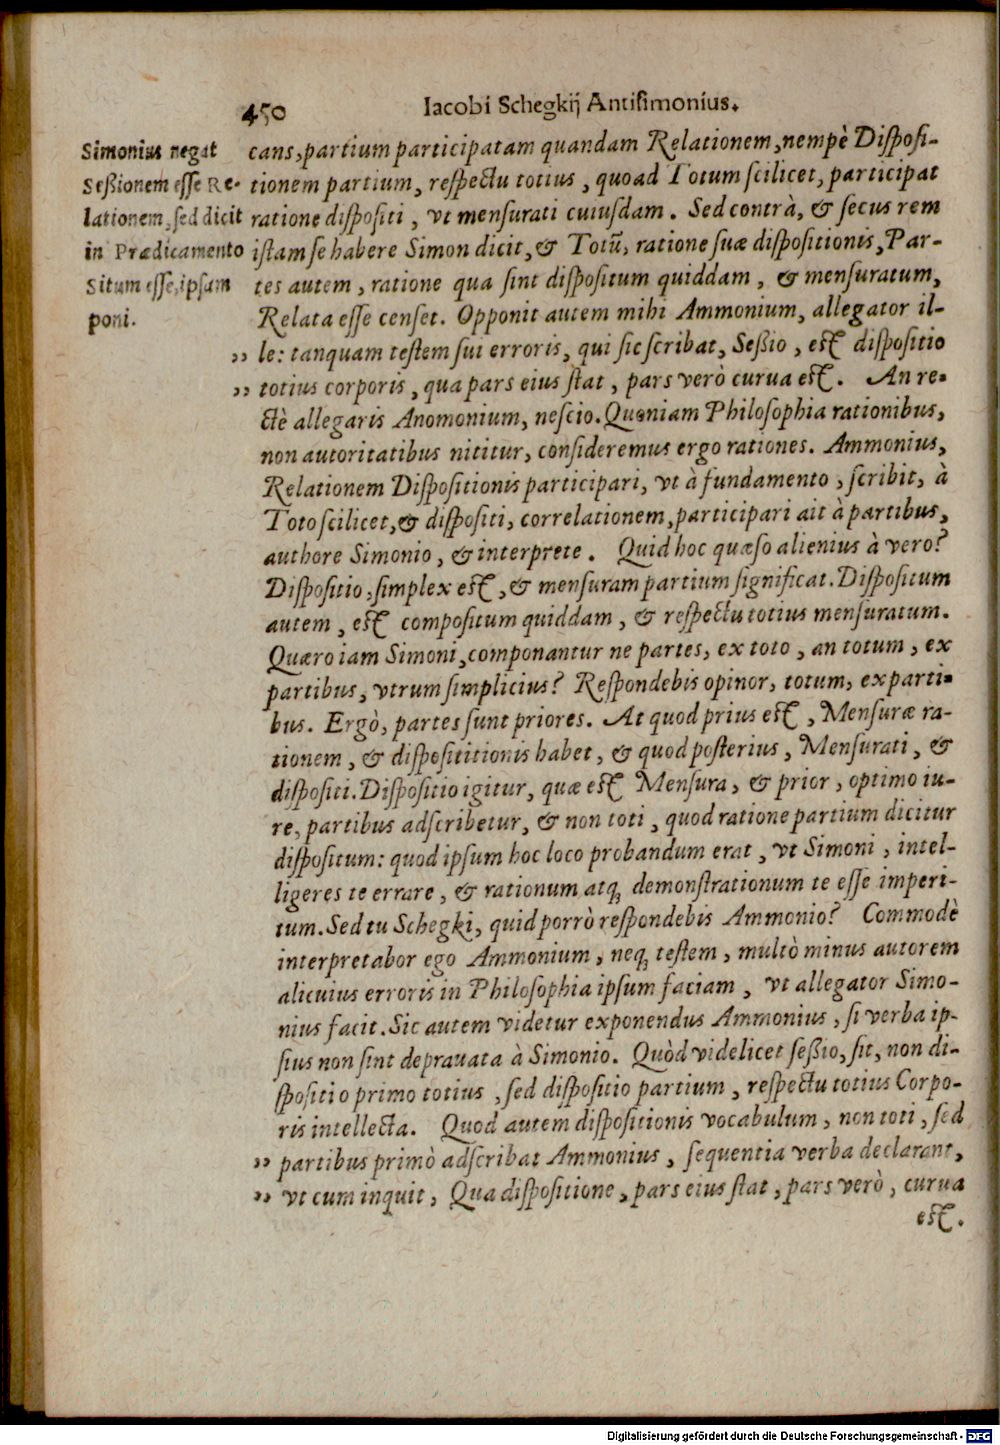 450
Iacobi Schegkij Antisimonius.
Simonius negat
Seßionem esse Re-
lationem, sed dicit
in Prædicamento
Situm esse, ipsam
poni.
cans, partium participatam quandam Relationem, nempè Disposi-
tionem partium, respectu totius, quoad Totum scilicet, participat
ratione dispositi, vt mensurati cuiusdam. Sed contrà, & secus rem
istam se habere Simon dicit, & Totũ, ratione suæ dispositionis, Par-
tes autem, ratione qua sint dispositum quiddam, & mensuratum,
Relata esse censet. Opponit autem mihi Ammonium, allegator il-
„ le: tanquam testem sui erroris, qui sic scribat, Seßio, est dispositio
„ totius corporis, qua pars eius stat, pars verò curua est. An re-
ctè allegaris Anomonium, nescio. Quoniam Philosophia rationibus,
non autoritatibus nititur, consideremus ergo rationes. Ammonius,
Relationem Dispositionis participari, vt à fundamento, scribit, à
Toto scilicet, & dispositi, correlationem, participari ait à partibus,
authore Simonio, & interprete. Quid hoc quæso alienius à vero?
Dispositio, simplex est, & mensuram partium significat. Dispositum
autem, est compositum quiddam, & respectu totius mensuratum.
Quæro iam Simoni, componantur ne partes, ex toto, an totum, ex
partibus, vtrum simplicius? Respondebis opinor, totum, ex parti-
bus. Ergò, partes sunt priores. At quod prius est, Mensuræ ra-
tionem, & disposititionis habet, & quod posterius, Mensurati, &
dispositi. Dispositio igitur, quæ est Mensura, & prior, optimo iu-
re, partibus adscribetur, & non toti, quod ratione partium dicitur
dispositum: quod ipsum hoc loco probandum erat, vt Simoni, intel-
ligeres te errare, & rationum atq; demonstrationum te esse imperi-
tum. Sed tu Schegki, quid porrò respondebis Ammonio? Commodè
interpretabor ego Ammonium, neq; testem, multò minus autorem
alicuius erroris in Philosophia ipsum faciam, vt allegator Simo-
nius facit. Sic autem videtur exponendus Ammonius, si verba ip-
sius non sint deprauata à Simonio. Quòd videlicet seßio, sit, non di-
spositio primo totius, sed dispositio partium, respectu totius Corpo-
ris intellecta. Quod autem dispositionis vocabulum, non toti, sed
„ partibus primò adscribat Ammonius, sequentia verba declarant,
„ vt cum inquit, Qua dispositione, pars eius stat, pars verò, curua
est.
Digitalisierung gefördert durch die Deutsche Forschungsgemeinschaft - DFG